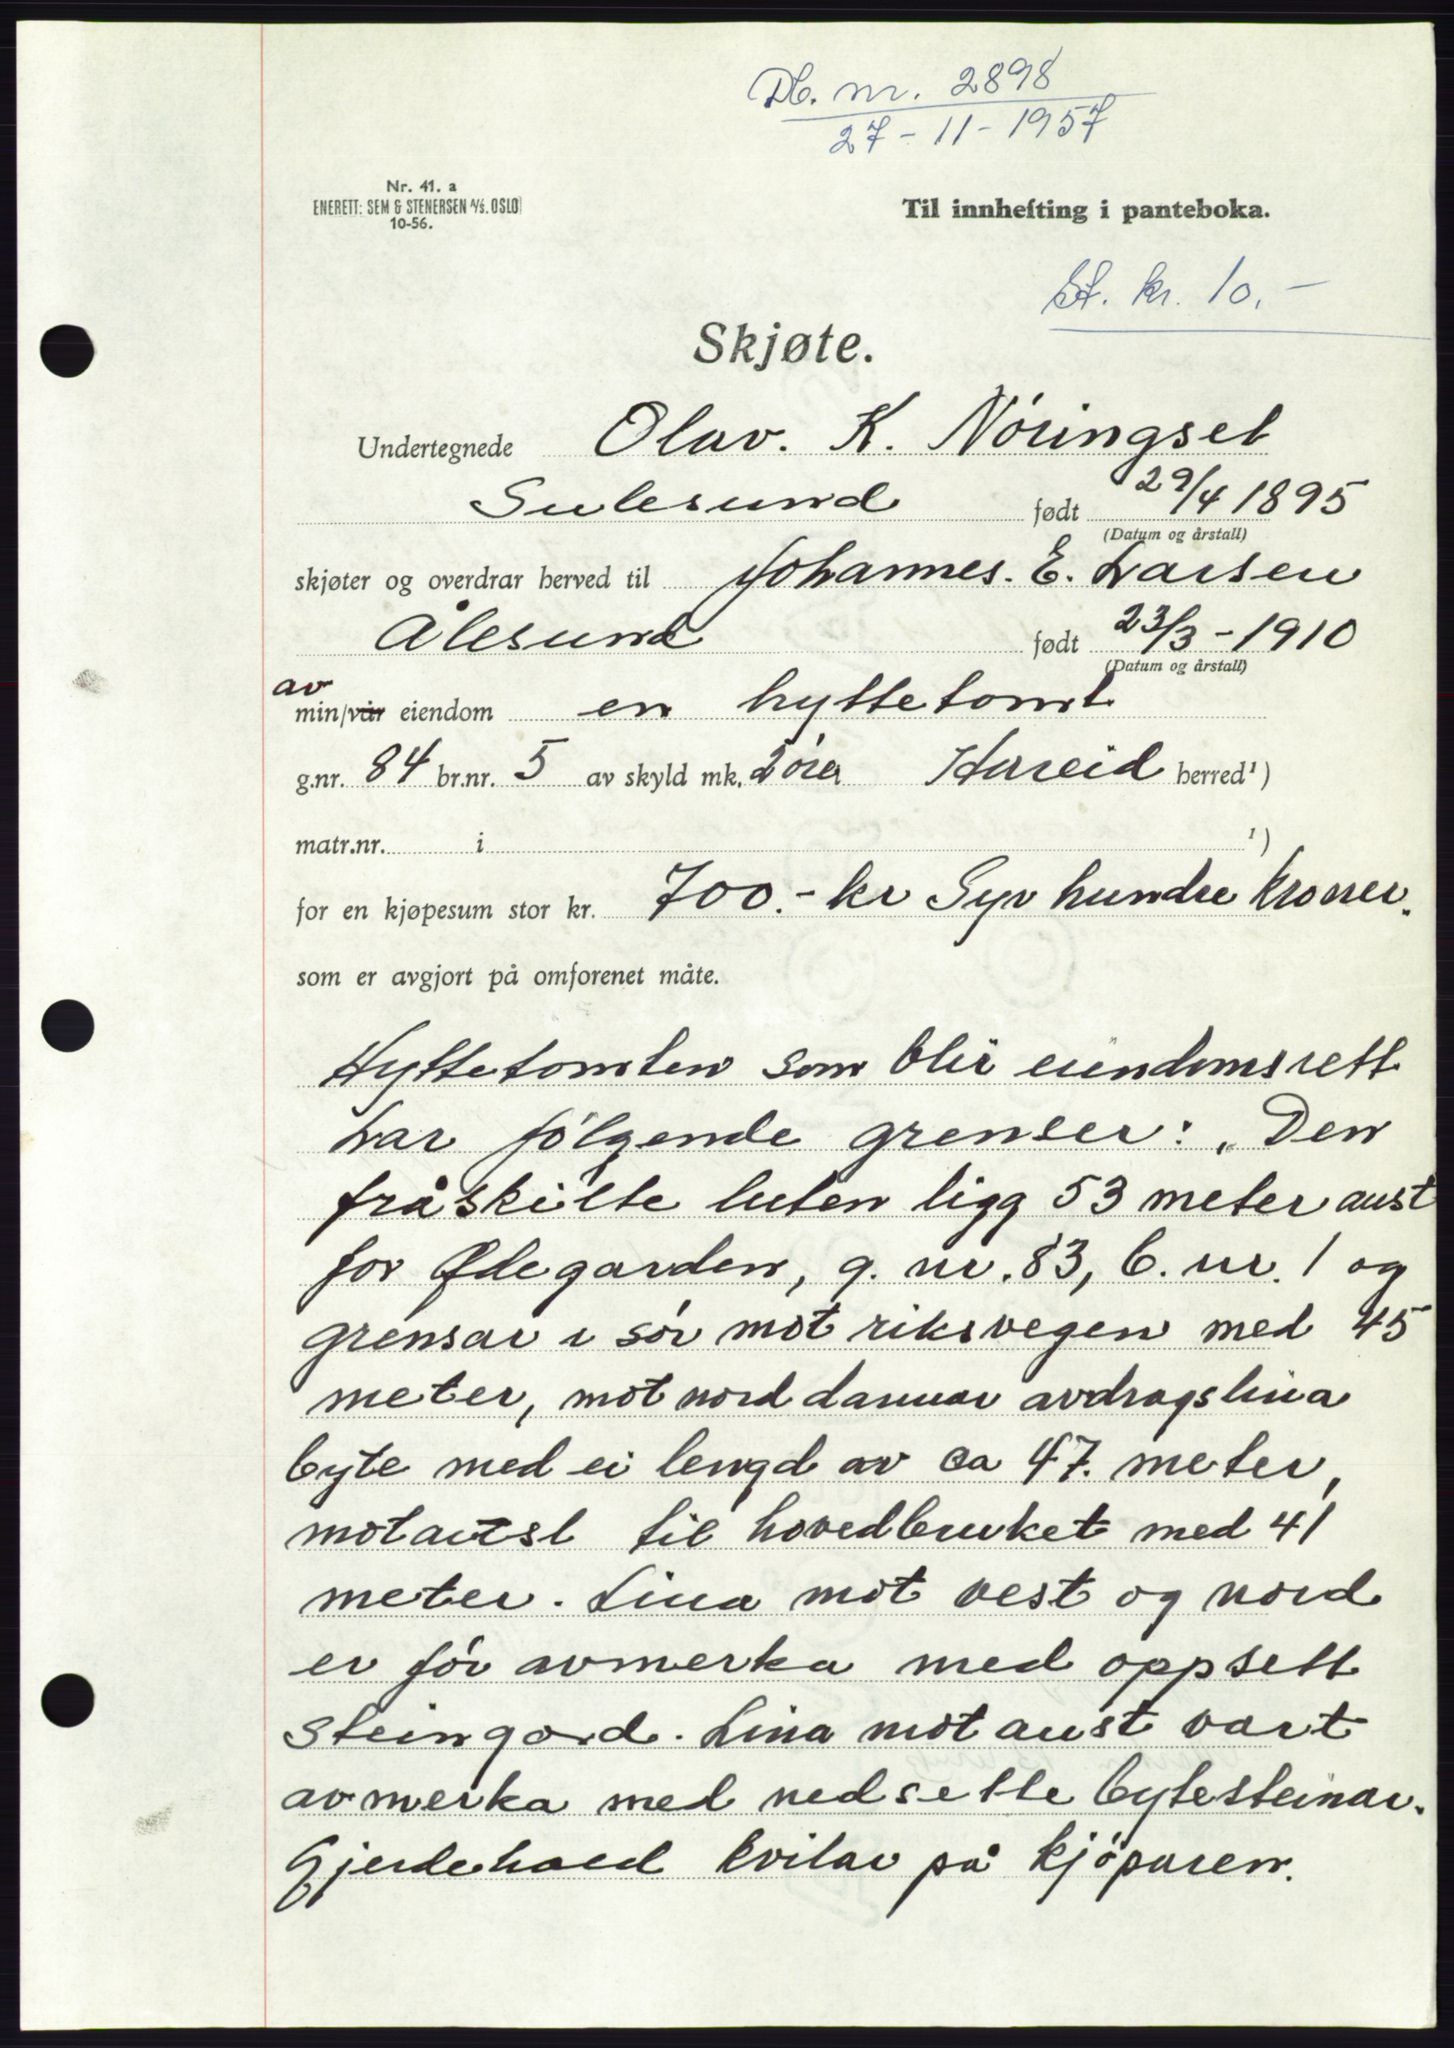 Db. nr. 2898
27-11-1957
Nr. 41. a
ENERETT: SEM & STENERSEN A/S. OSLO
10-56.
Til innhefting i panteboka.
St. kr. 10.-
Skjøte.
Undertegnede Olav. K. Nöringset
Sulesund født 29/4 1895
(Datum og årstall)
skjøter og overdrar herved til Johannes. E. Larsen
Ålesund født 23/3-1910
(Datum og årstall)
av
min/vår eiendom en hyttetomt
g.nr. 84 br.nr. 5 av skyld mk. 2 öre Hareid herred¹)
matr.nr. i ¹)
for en kjøpesum stor kr. 700.- kr Syv hundre kroner.
som er avgjort på omforenet måte.
Hyttetomten som blir eiendomsrett
har fölgende grenser: "Den
fråskilte luten ligg 53 meter aust
for Ødegarden, g. nr. 83, b. nr. 1 og
grensar i sör mot riksvegen med 45
meter, mot nord dannar avdragslina
byte med ei lengd av ca 47. meter,
mot aust til hovedbruket med 41
meter. Lina mot vest og nord
er för avmerka med oppsett
steingard. Lina mot aust vart
avmerka med nedsette bytesteinar.
Gjerdehald kvilar på kjöparen.